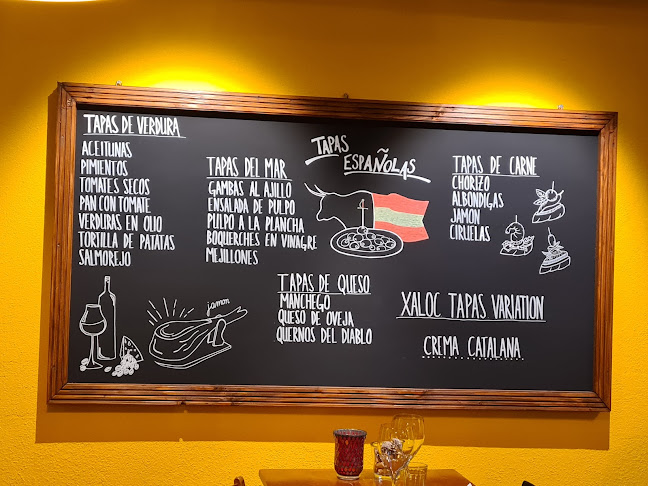 TAPAS DE VERDURA
ACEITUNAS
PIMIENTOS
TOMATES SECOS
PAN CON TOMATE
VERDURAS EN OLIO
TORTILLA DE PATATAS
SALMOREJO
TAPAS DEL MAR
GAMBAS AL AJILLO
ENSALADA DE PULPO
PULPO A LA PLANCHA
BOQUERCHES EN VINAGRE
MEJILLONES
TAPAS
ESPAÑOLAS
TAPAS DE CARNE
CHORIZO
ALBONDIGAS
JAMON
CIRUELAS
TAPAS DE QUESO
MANCHEGO
QUESO DE OVEJA
QUERNOS DEL DIABLO
XALOC TAPAS VARIATION
CREMA CATALANA
jamon